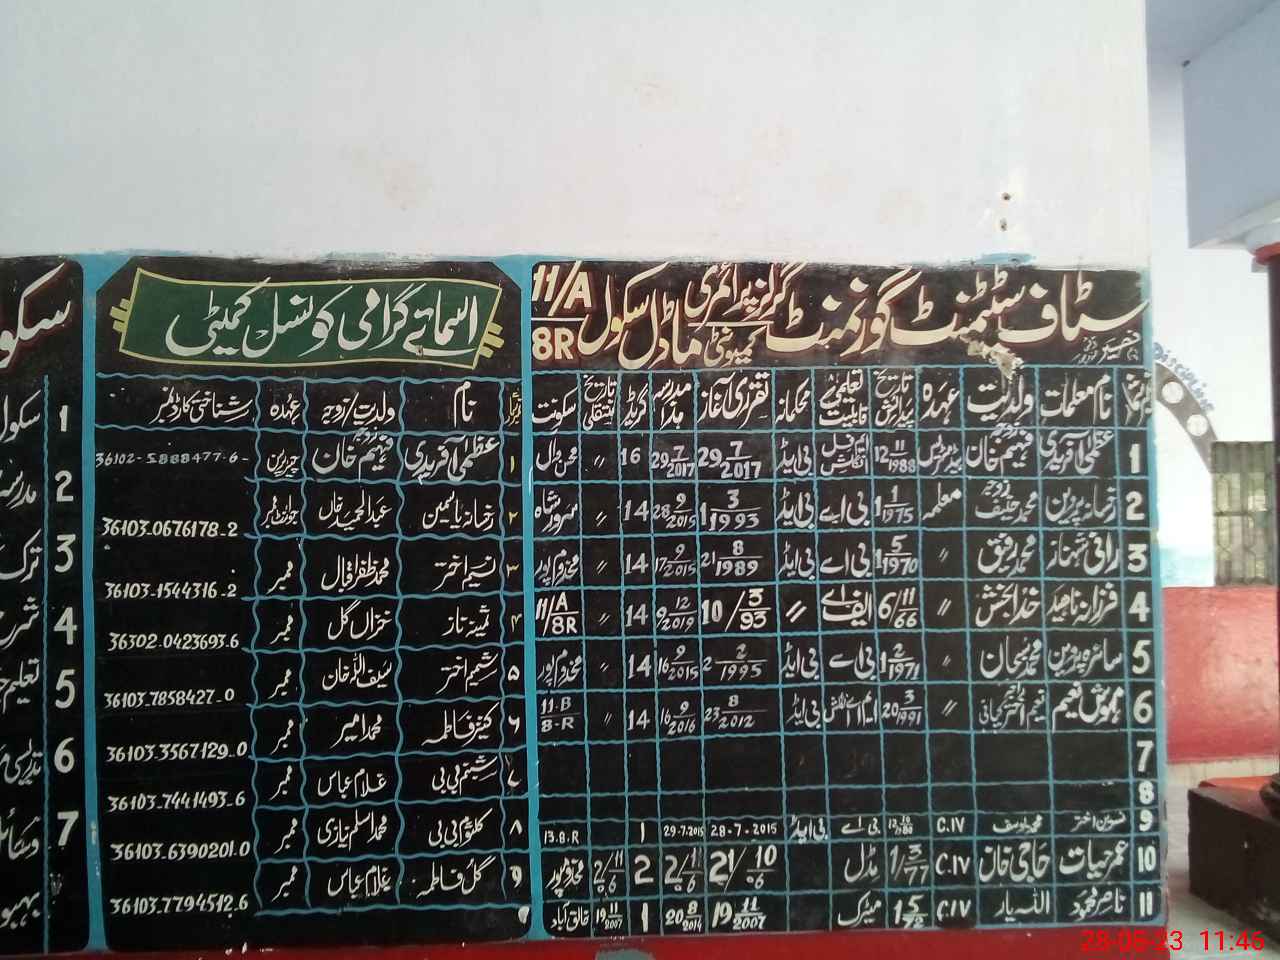 سٹاف سٹیٹمنٹ گورنمنٹ گرلز پرائمری کمیونٹی ماڈل سکول 11/A 8R
نام معلمات ولدیت/زوجیت عہدہ تاریخ پیدائش تعلیمی قابلیت محکمانہ تقرری آغاز مدرسہ ہذا گریڈ تاریخ منتقلی سکونت
1 عظمیٰ آفریدی فہیم خان ہیڈمسٹریس 12 11/1988 ایم فل انگلش بی ایڈ 29 7/2017 29 7/2017 16 〃 محسن وال
2 رخسانہ پروین محمد حنیف معلمہ 1 1/1975 بی اے بی ایڈ 1 3/1993 28 9/2015 14 〃 سرور شاہ
3 رانی شہناز محمد رفیق 〃 1 5/1970 بی اے بی ایڈ 21 8/1989 17 9/2015 14 〃 مخدوم پور
4 فرزانہ ناہید خدا بخش 〃 6/11/66 ایف اے 〃 10/3/93 9 12/2019 14 〃 11/A/8R
5 سائرہ پروین محمد سبحان 〃 1 2/1971 بی اے بی ایڈ 2 2/1995 16 9/2015 14 〃 مخدوم پور
6 مہوش نعیم نعیم اختر کیانی 〃 20 3/1991 ایم اے انگلش بی ایڈ 23 8/2012 16 9/2016 14 〃 11-B 8-R
7
8
9 نسرین اختر محمد یوسف C.IV 12 10/1980 بی اے بی ایڈ 28-7-2015 29-7-2015 1 13.8.R
10 عمر حیات حاجی خان C.IV 1/3/77 مڈل 21/10/06 2/11/06 2 2/11/06 مخدوم پور
11 ناصر محمود اللہ یار C.IV 1 5/72 میٹرک 19 11/2007 20 8/2014 1 19 11/2007 خالق آباد
اسمائے گرامی کونسل کمیٹی
نام ولدیت/زوجیہ عہدہ شناختی کارڈ نمبر
۱ عظمیٰ آفریدی زوجہ فہیم خان چیئرپرسن 36102-5888477-6
۲ رخسانہ یاسمین عبدالحمید خاں 36103-0676178-2
۳ نسیم اختر محمد ظفر اقبال ممبر 36103-1544316-2
۴ ثمینہ ناز خزاں گل ممبر 36302-0423693-6
۵ شمیم اختر سیف اللہ خان ممبر 36103-7858427-0
۶ کنیز فاطمہ محمد امیر ممبر 36103-3567129-0
۷ شبنم بی بی غلام عباس ممبر 36103-7441493-6
۸ کلثوم بی بی محمد اسلم نیازی ممبر 36103-6390201-0
۹ گل فاطمہ غلام عباس ممبر 36103-7794512-6
1 سکول
2 مدرسہ
3 ترک
4
5 تعلیم
6 تدریسی
7 وسائل
28-05-23 11:46